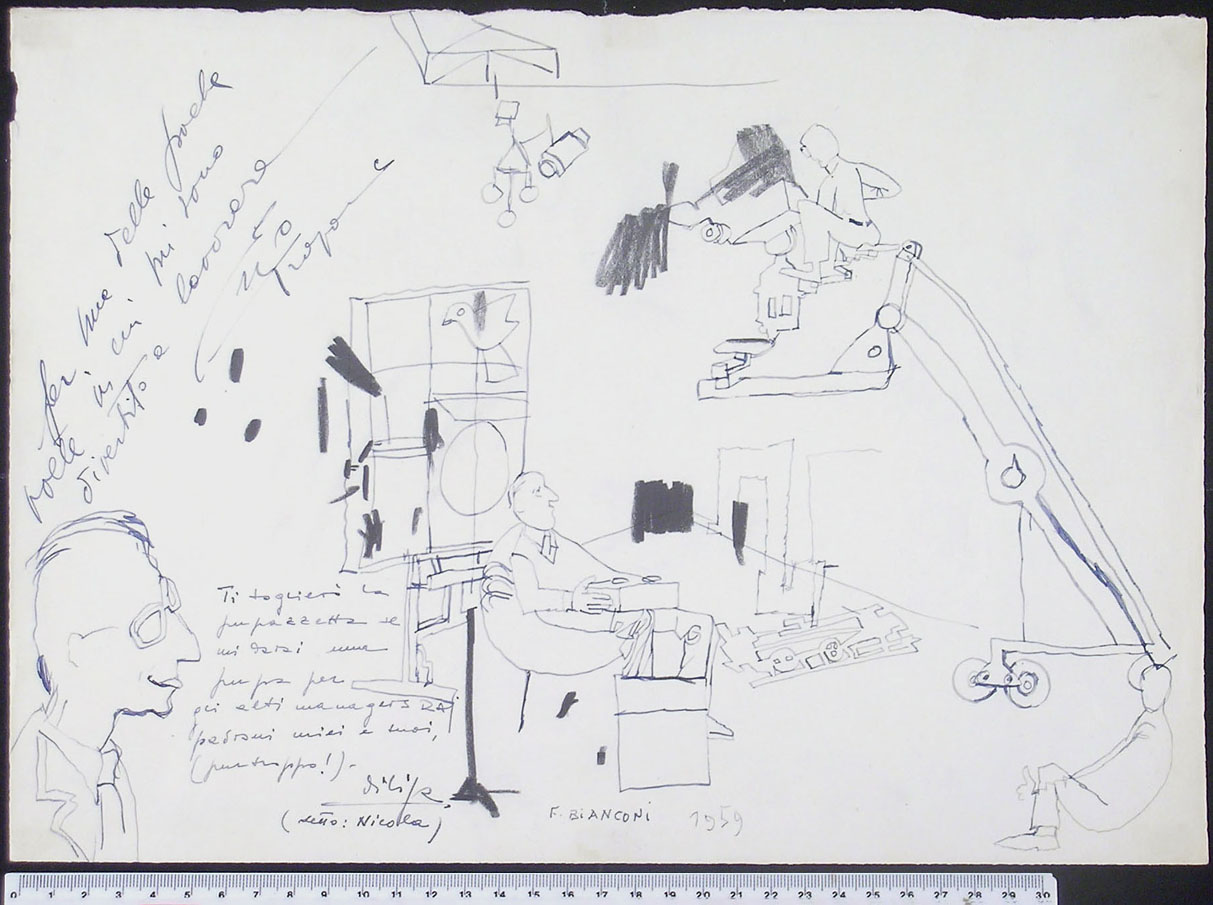 per una delle poche
volte in cui mi sono
divertito a lavorare
Ti toglierò la
pupazzetta se
mi darai una
pupa per
gli alti managers RAI
padroni miei e tuoi,
(purtroppo!) -
(detto: Nicola)
F. BIANCONI 1959
0 1 2 3 4 5 6 7 8 9 10 11 12 13 14 15 16 17 18 19 20 21 22 23 24 25 26 27 28 29 30